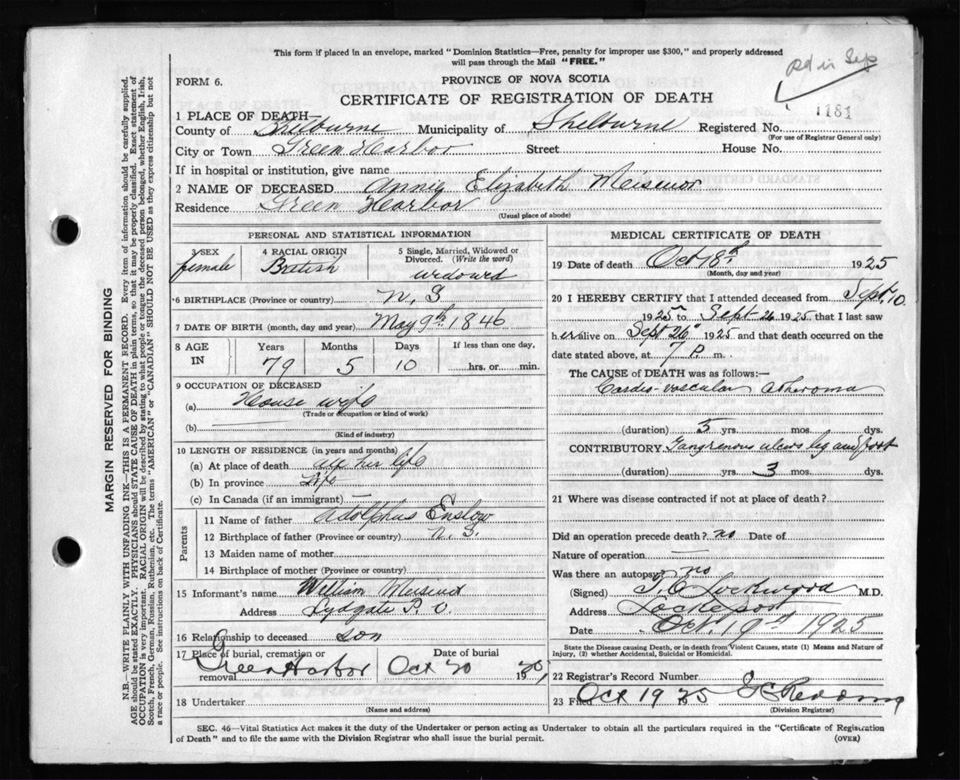 This form if placed in an envelope, marked "Dominion Statistics—Free, penalty for improper use $300," and properly addressed
will pass through the Mail "FREE."
rd in Sep
FORM 6.
PROVINCE OF NOVA SCOTIA
CERTIFICATE OF REGISTRATION OF DEATH
1181
1 PLACE OF DEATH—
County of Shelburne Municipality of Shelburne Registered No.
(For use of Registrar General only)
City or Town Green Harbor Street House No.
If in hospital or institution, give name
2 NAME OF DECEASED Annie Elizabeth Meisenor
Residence Green Harbor
(Usual place of abode)
PERSONAL AND STATISTICAL INFORMATION
3 SEX
female
4 RACIAL ORIGIN
British
5 Single, Married, Widowed or
Divorced. (Write the word)
widowd
6 BIRTHPLACE (Province or country) N. S
7 DATE OF BIRTH (month, day and year) May 9th 1846
8 AGE
IN
Years Months Days If less than one day,
79 5 10 hrs. or min.
9 OCCUPATION OF DECEASED
(a) House wife
(Trade or occupation or kind of work)
(b)
(Kind of industry)
10 LENGTH OF RESIDENCE (in years and months)
(a) At place of death all her life
(b) In province Life
(c) In Canada (if an immigrant) —
Parents
11 Name of father Adolphus Enslow
12 Birthplace of father (Province or country) N. S.
13 Maiden name of mother
14 Birthplace of mother (Province or country)
15 Informant's name William
Address Lydgate P. O.
16 Relationship to deceased son
17 Place of burial, cremation or
removal
Green Harbor
Date of burial
Oct 20 1925
18 Undertaker
(Name and address)
MEDICAL CERTIFICATE OF DEATH
19 Date of death Oct 18th 1925
(Month, day and year)
20 I HEREBY CERTIFY that I attended deceased from Sept. 10
1925 to Sept 26 1925 that I last saw
h er alive on Sept 26" 1925 and that death occurred on the
date stated above, at 7 P. m.
The CAUSE of DEATH was as follows:—
Cardio-vascular Atheroma
(duration) 5 yrs. mos. dys.
CONTRIBUTORY Gangrenous ulcers leg and foot
(duration) yrs. 3 mos. dys.
21 Where was disease contracted if not at place of death?
Did an operation precede death? no Date of
Nature of operation —
Was there an autopsy no
(Signed) Lockwood M.D.
Address Lockeport
Date Oct. 19th 1925
State the Disease causing Death, or in death from Violent Causes, state (1) Means and Nature of
Injury, (2) whether Accidental, Suicidal or Homicidal.
22 Registrar's Record Number
23 Filed Oct 19 25
(Division Registrar)
SEC. 46—Vital Statistics Act makes it the duty of the Undertaker or person acting as Undertaker to obtain all the particulars required in the "Certificate of Registration
of Death" and to file the same with the Division Registrar who shall issue the burial permit. (OVER)
MARGIN RESERVED FOR BINDING
N.B.—WRITE PLAINLY WITH UNFADING INK—THIS IS A PERMANENT RECORD. Every item of information should be carefully supplied.
AGE should be stated EXACTLY. PHYSICIANS should STATE CAUSE OF DEATH in plain terms, so that it may be properly classified. Exact statement of
OCCUPATION is very important. RACIAL ORIGIN will be described by stating to what people or tongue the deceased person belonged, whether English, Irish,
Scotch, French, German, Russian, Ruthenian, etc. The terms "AMERICAN" or "CANADIAN" SHOULD NOT BE USED as they express citizenship but not
a race or people. See instructions on back of Certificate.